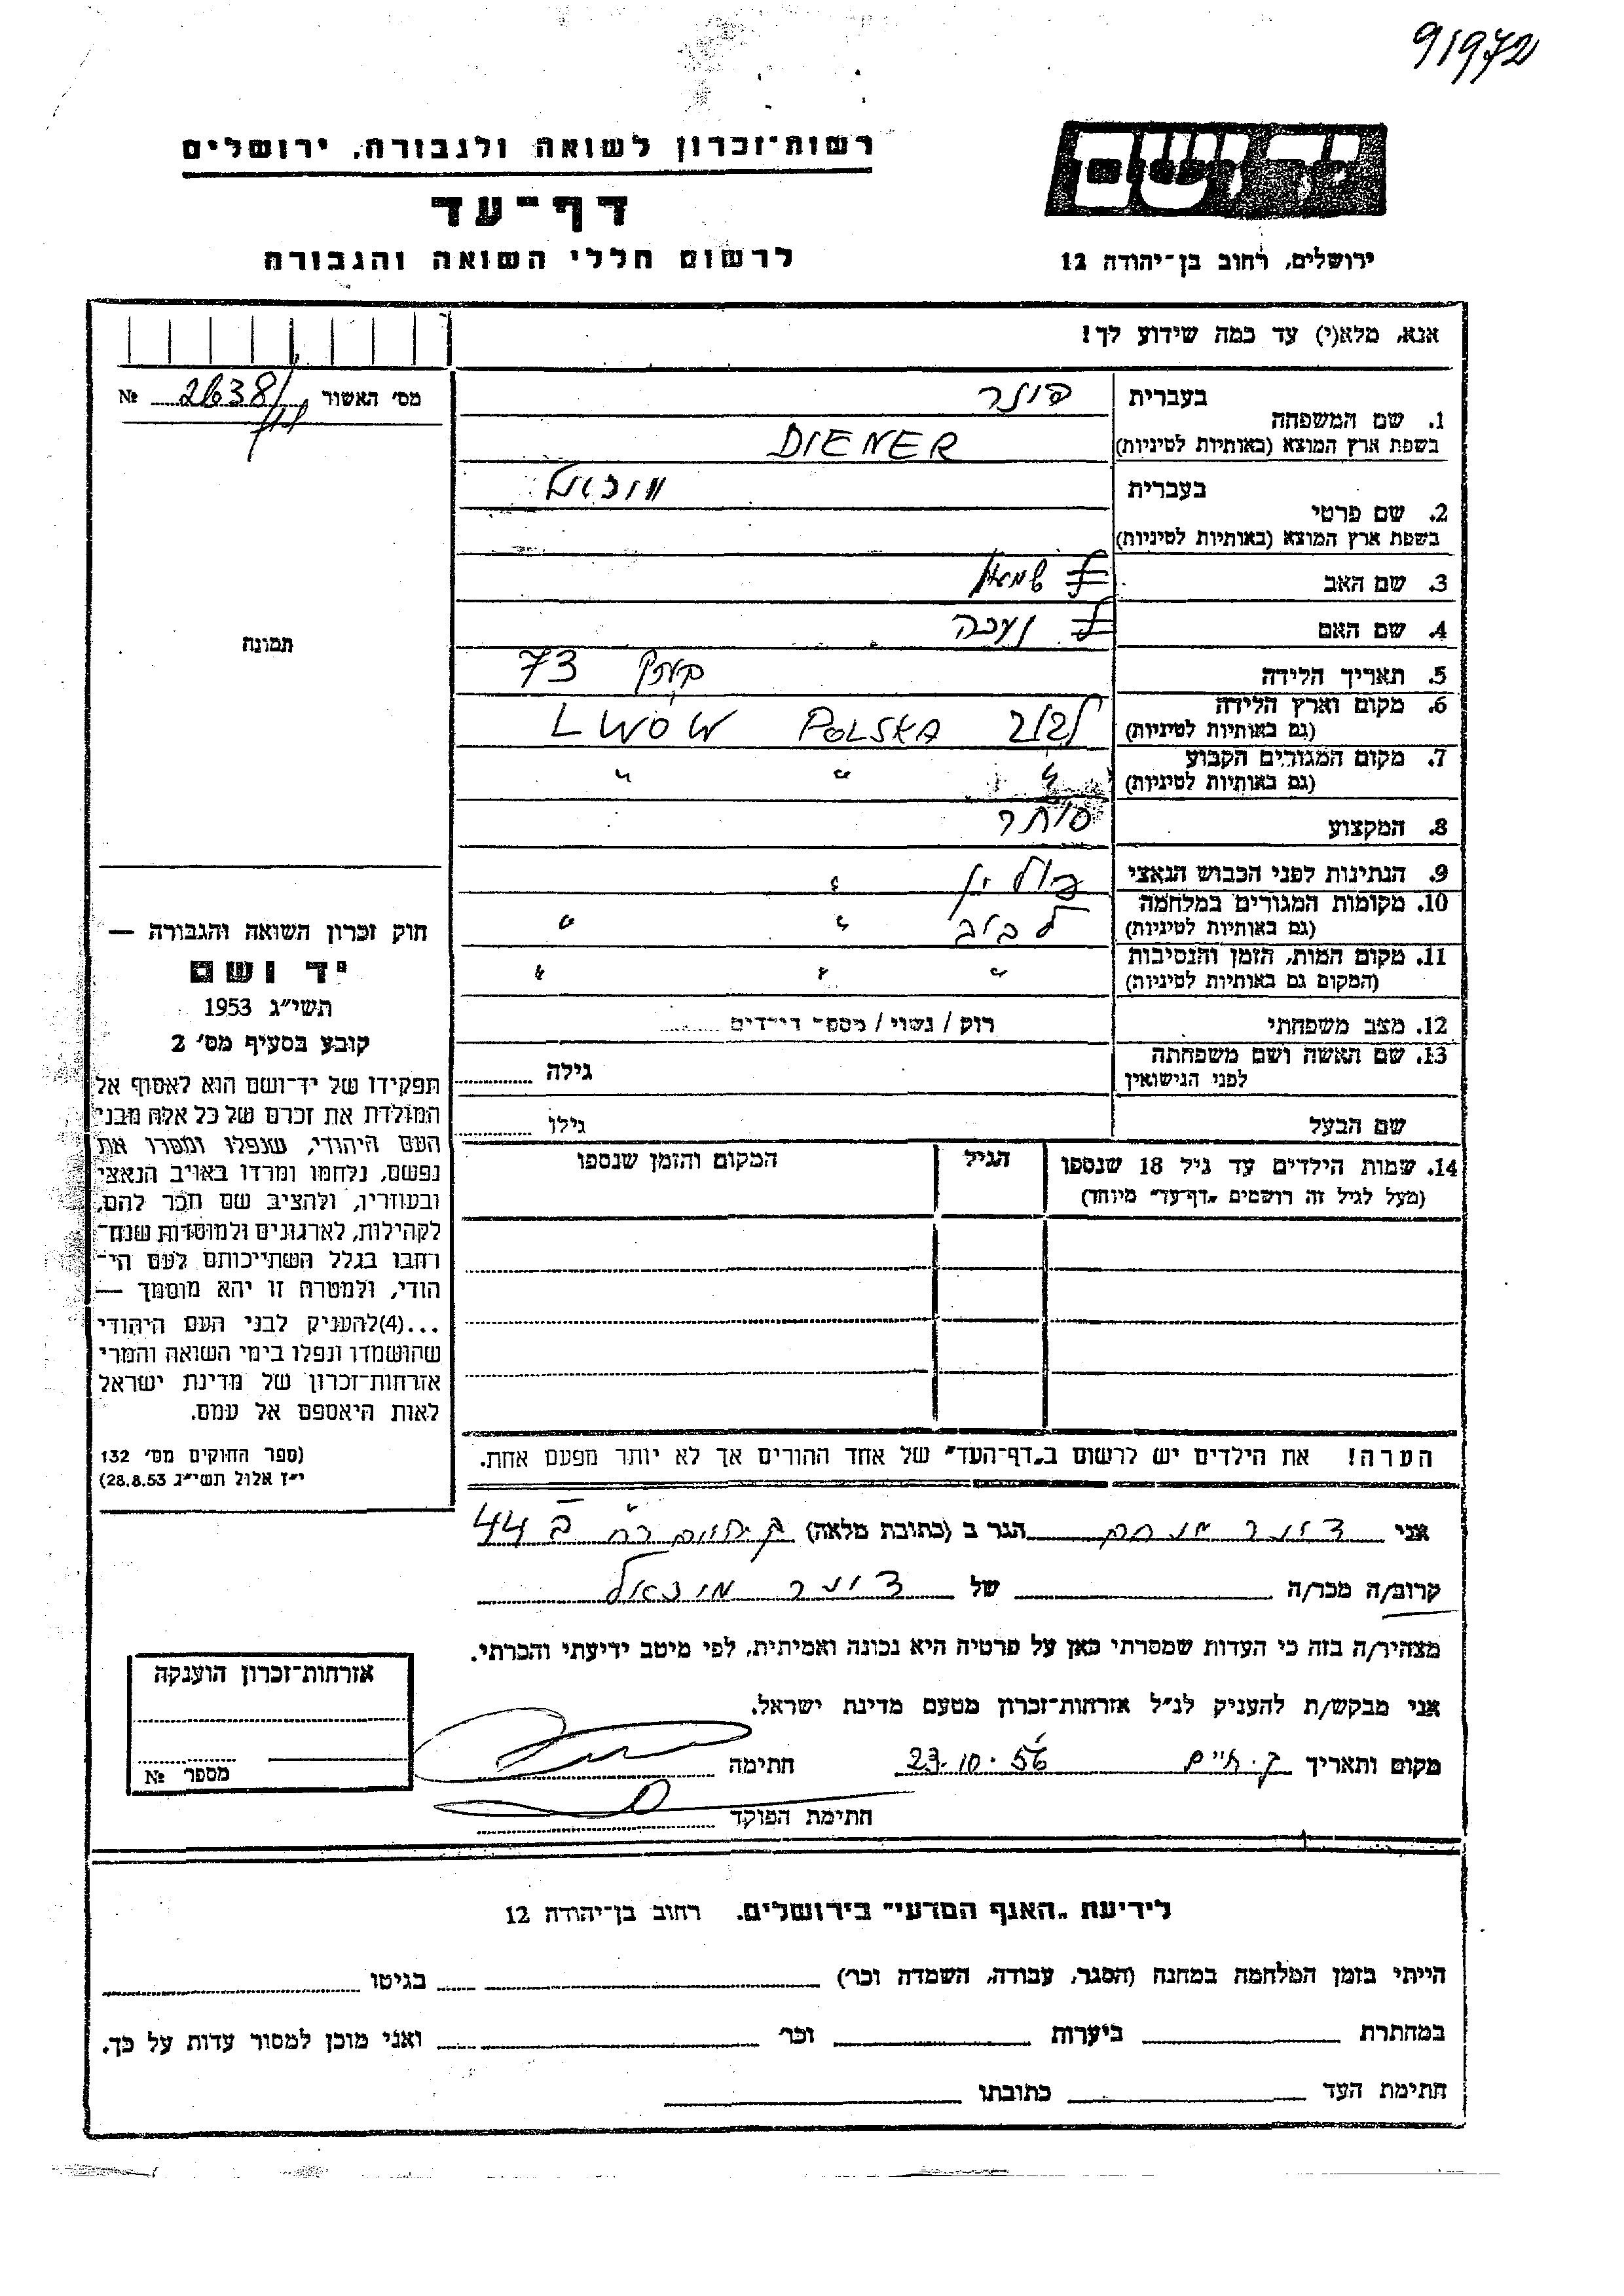 91972
יד ושם
רשות-זכרון לשואה ולגבורה, ירושלים
דף-עד
לרשום חללי השואה והגבורה
ירושלים, רחוב בן-יהודה 12
אנא, מלא(י) עד כמה שידוע לך!
מס' האשור № 21638/
1. שם המשפחה
בעברית דינר
בשפת ארץ המוצא (באותיות לטיניות) DIENER
2. שם פרטי
בעברית
בשפת ארץ המוצא (באותיות לטיניות)
3. שם האב שמואל
4. שם האם
5. תאריך הלידה 73
6. מקום וארץ הלידה
(גם באותיות לטיניות) LWÓW POLSKA
7. מקום המגורים הקבוע
(גם באותיות לטיניות) " " "
8. המקצוע סוחר
9. הנתינות לפני הכבוש הנאצי פולין
10. מקומות המגורים במלחמה
(גם באותיות לטיניות) לבוב " "
11. מקום המות, הזמן והנסיבות
(המקום גם באותיות לטיניות) " " "
12. מצב משפחתי רוק / נשוי / מספר הילדים
13. שם האשה ושם משפחתה
לפני הנישואין גילה
שם הבעל גילו
14. שמות הילדים עד גיל 18 שנספו
(מעל לגיל זה רושמים "דף-עד" מיוחד)
הגיל
המקום והזמן שנספו
הערה! את הילדים יש לרשום ב"דף-העד" של אחד ההורים אך לא יותר מפעם אחת.
תמונה
חוק זכרון השואה והגבורה —
יד ושם
תשי"ג 1953
קובע בסעיף מס' 2
תפקידו של יד-ושם הוא לאסוף אל
המולדת את זכרם של כל אלה מבני
העם היהודי, שנפלו ומסרו את
נפשם, נלחמו ומרדו באויב הנאצי
ובעוזריו, ולהציב שם וזכר להם,
לקהילות, לארגונים ולמוסדות שנח-
רחבו בגלל השתייכותם לעם הי-
הודי, ולמטרה זו יהא מוסמך —
...(4)להעניק לבני העם היהודי
שהושמדו ונפלו בימי השואה והמרי
אזרחות-זכרון של מדינת ישראל
לאות היאספם אל עמם.
(ספר החוקים מס' 132
י"ז אלול תשי"ג 28.8.53)
אני דינר הגר ב (כתובת מלאה) 44
קרוב/ה מכר/ה של דינר
מצהיר/ה בזה כי העדות שמסרתי כאן על פרטיה היא נכונה ואמיתית, לפי מיטב ידיעתי והכרתי.
אני מבקש/ת להעניק לנ"ל אזרחות-זכרון מטעם מדינת ישראל.
מקום ותאריך ק. חיים 23.10.56 חתימה
חתימת הפוקד
אזרחות-זכרון הוענקה
מספר №
לידיעת "האגף המדעי" בירושלים, רחוב בן-יהודה 12
הייתי בזמן המלחמה במחנה (הסגר, עבודה, השמדה וכו') בגיטו
במחתרת ביערות וכו' ואני מוכן למסור עדות על כך.
חתימת העד כתובתו